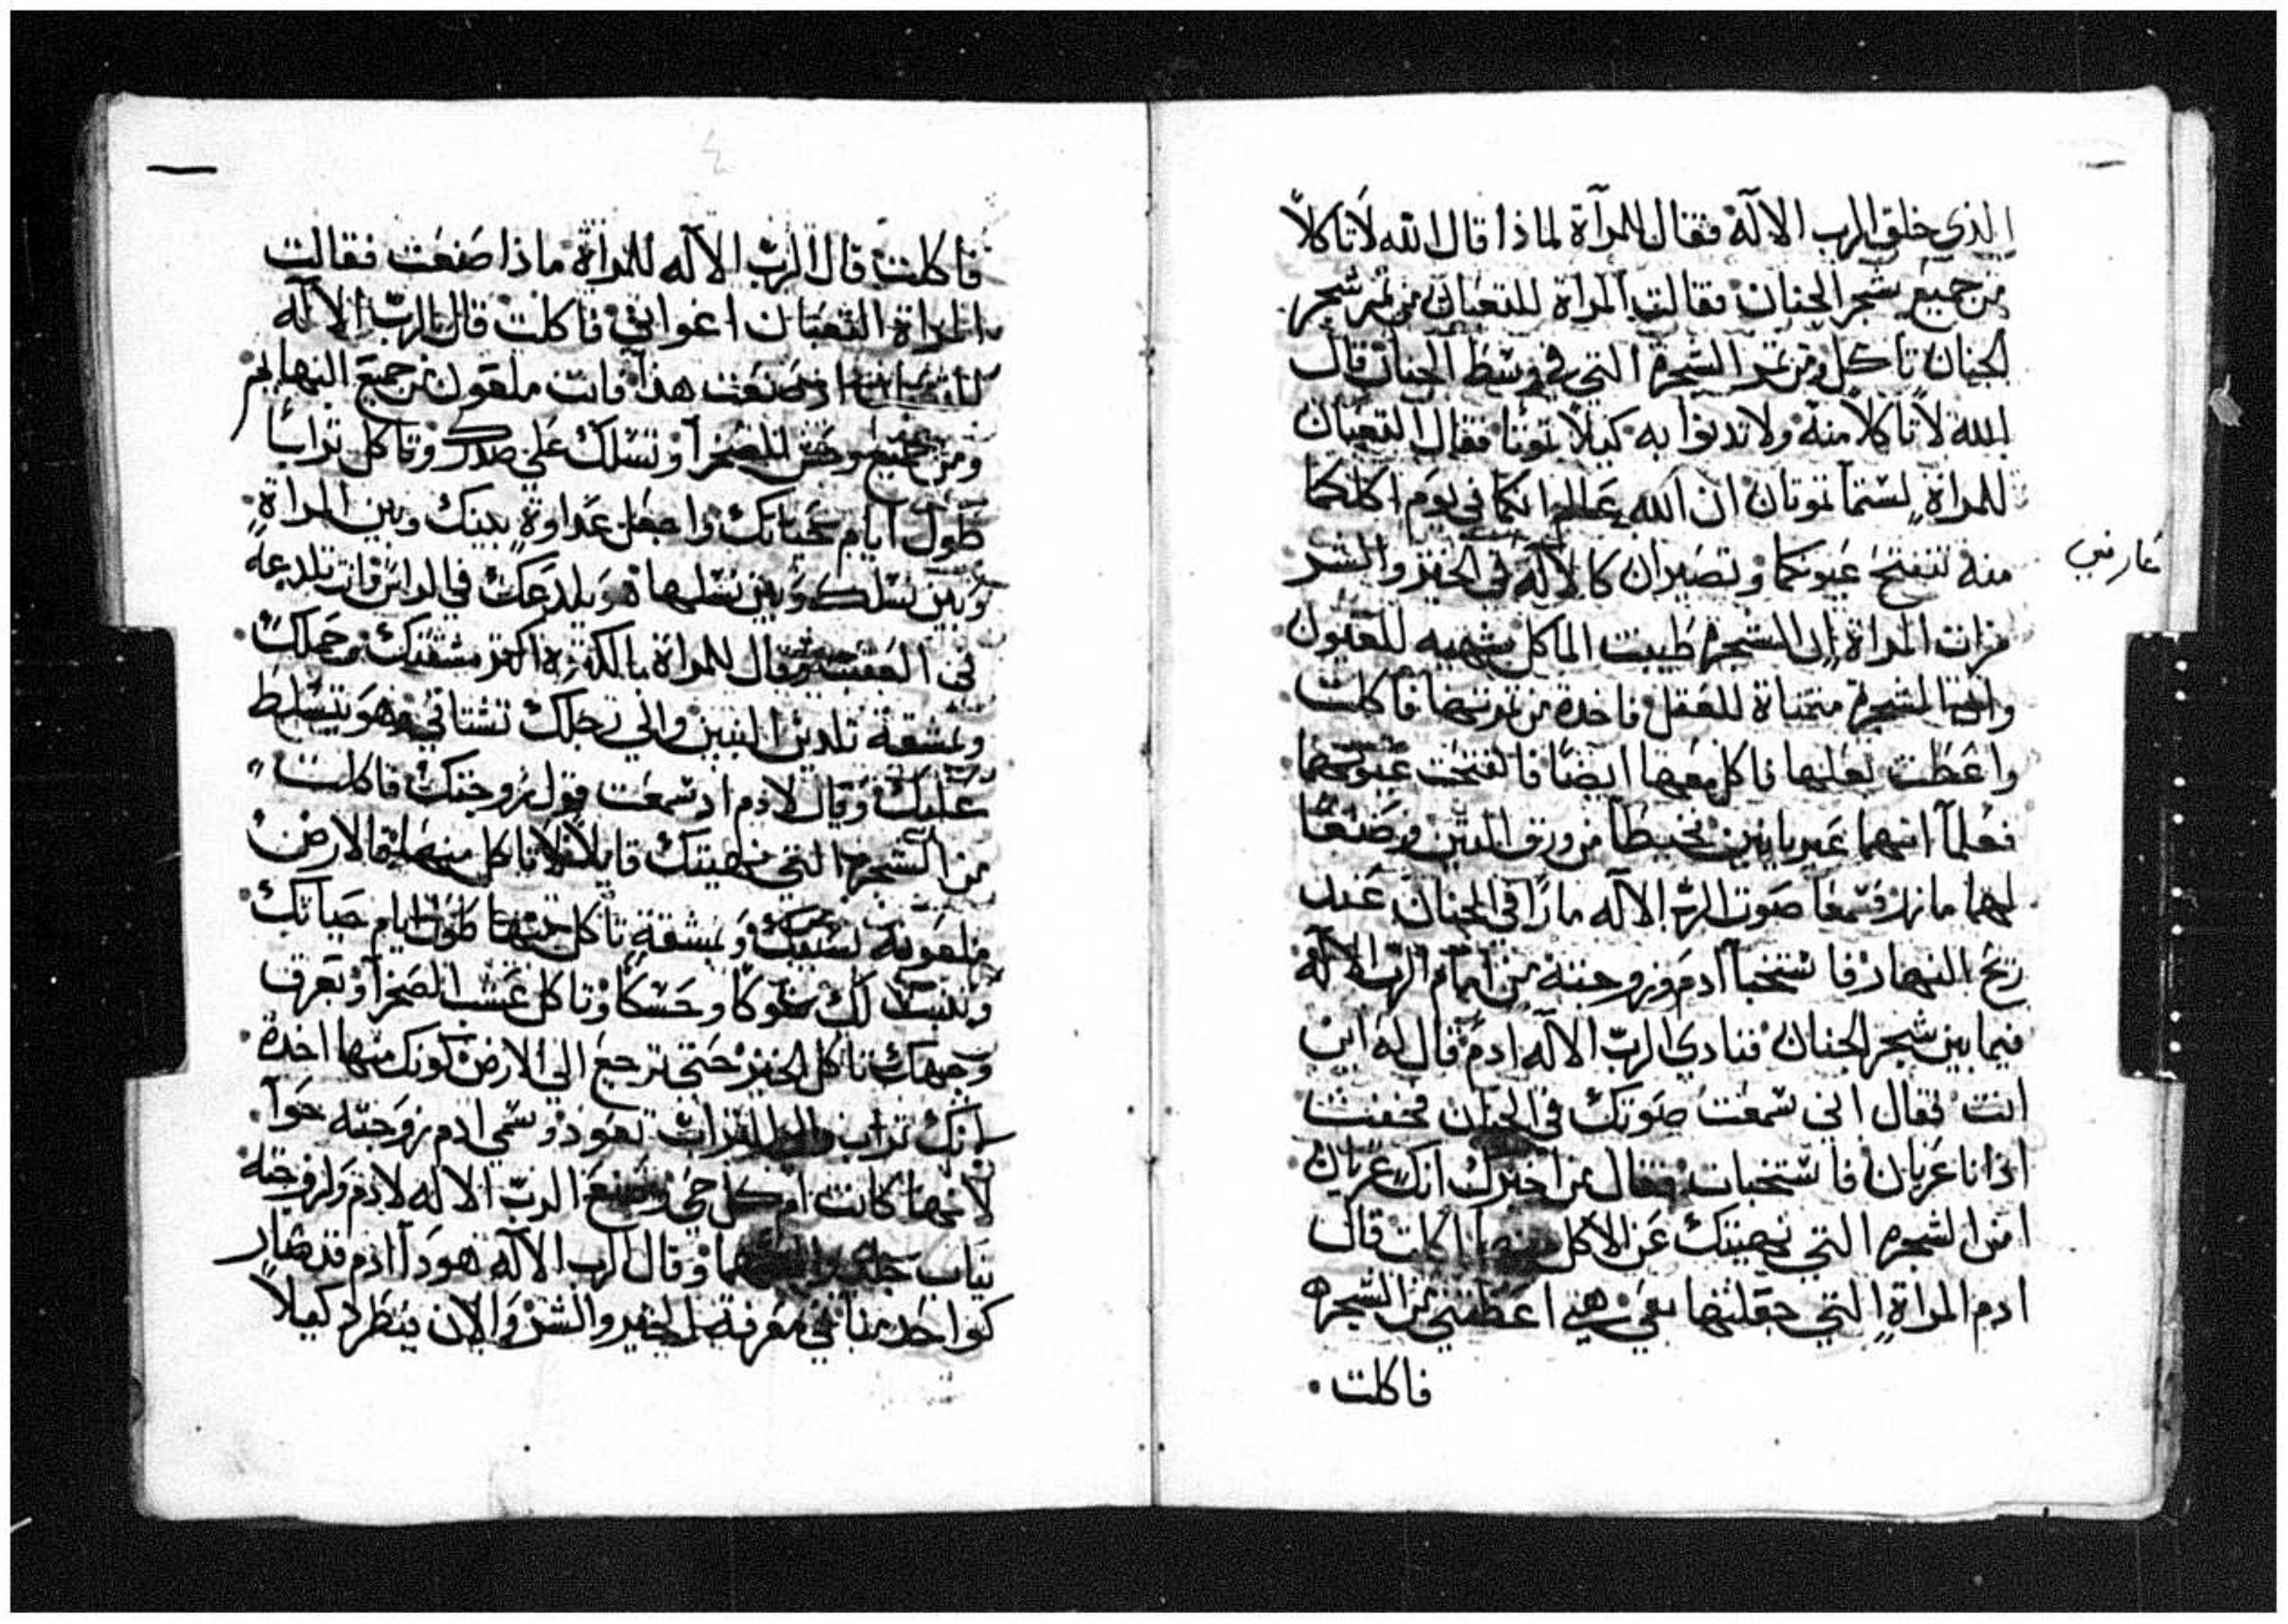 الذي خلق الرب الاله فقال للمرآة لماذا قال الله لا تاكلا
من جميع شجر الجنان فقالت المراة للتعبان من ثمر شجر
الجنان ناكل ومن ثمر الشجرة التي في وسط الجنان قال
الله لا تاكلا منه ولا تدنوا به كيلا تموتا فقال التعبان
للمراة لستما تموتان ان الله عالم انكما في يوم اكلكما
منه تنفتح عيونكما وتصيران كالالة في الخير والشر
عارفي
فرات المراة ان الشجرة طيبت الماكل شهيه للعيون
وان الشجرة متمناة للعقل فاخدة من ثمرتها فاكلت
واعطت بعلها فاكل معها ايضا فانفتحت عيونهما
فعلمآ انهما عريانين فخيطا من ورق التين وصنعا
لهما مازر فسمعا صوت الرب الاله مارا في الجنان عند
ريح النهار فاستخبآ آدم وزوجته من امام الرب الاله
فيما بين شجر الجنان فنادى الرب الاله ادم قال له اين
انت فقال اني سمعت صوتك في الجنان فخفت
اذ انا عريان فاستخبات فقال من اخبرك انك عريان
امن الشجره التي نهيتك عن الاكل منها اكلت قال
ادم المراة التي جعلتها معي هي اعطتني من الشجره
فاكلت
فاكلت قال الرب الاله للمراة ماذا صنعت فقالت
المراة التعبان اغواني فاكلت قال الرب الاله
اذ صنعت هذا فانت ملعون من جميع البهايم
ومن جميع وحش الصحرآ وتسلك علي صدرك وتاكل ترابا
طول ايام حياتك واجعل عداوة بينك وبين المراة
وبين نسلك وبين نسلها هو يلدعك في الراس وانت تلدعه
في العقب وقال للمراة بالكثرة اكثر مشقتك من حملك
وبمشقة تلدين البنين والى رجلك تشتاقي وهو يتسلط
عليك وقال لادم اد سمعت قول زوجتك فاكلت
من الشجرة التي نهيتك قايلا لا تاكل منها فالارض
ملعونه بسببك وبمشقة تاكل منها طول ايام حياتك
وتنبت لك شوكا وحسكا وتاكل عشب الصحرآ وبعرق
وجهك تاكل الخبز حتى ترجع الي الارض كونك منها اخدة
انك تراب والى التراب تعود وسمي ادم زوجته حوآ
لانها كانت ام كل حي وصنع الرب الاله لادم ولزوجته
تياب جلد والبسهما وقال الرب الاله هودا ادم قد صار
كواحد منا في معرفة الخير والشر والان ينطرد كيلا